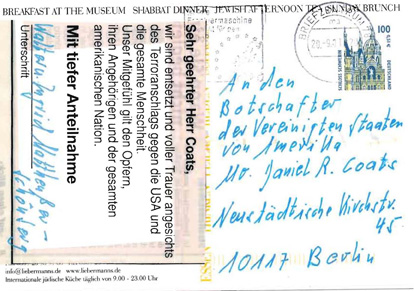 BREAKFAST AT THE MUSEUM SHABBAT DINNER JEWISH AFTERNOON TEA SUNDAY BRUNCH
Sehr geehrter Herr Coats,
wir sind entsetzt und voller Trauer angesichts
des Terroranschlags gegen die USA und
die gesamte Menschheit.
Unser Mitgefühl gilt den Opfern,
ihren Angehörigen und der gesamten
amerikanischen Nation.
Mit tiefer Anteilnahme
Unterschrift
BRIEFZENTRUM
100
DEUTSCHLAND
An den
Botschafter
der Vereinigten Staaten
von Amerika
Mr. Daniel R. Coats
Neustädtische Kirchstr.
45
10117 Berlin
info@liebermanns.de www.liebermanns.de
Internationale jüdische Küche täglich von 9.00 - 23.00 Uhr